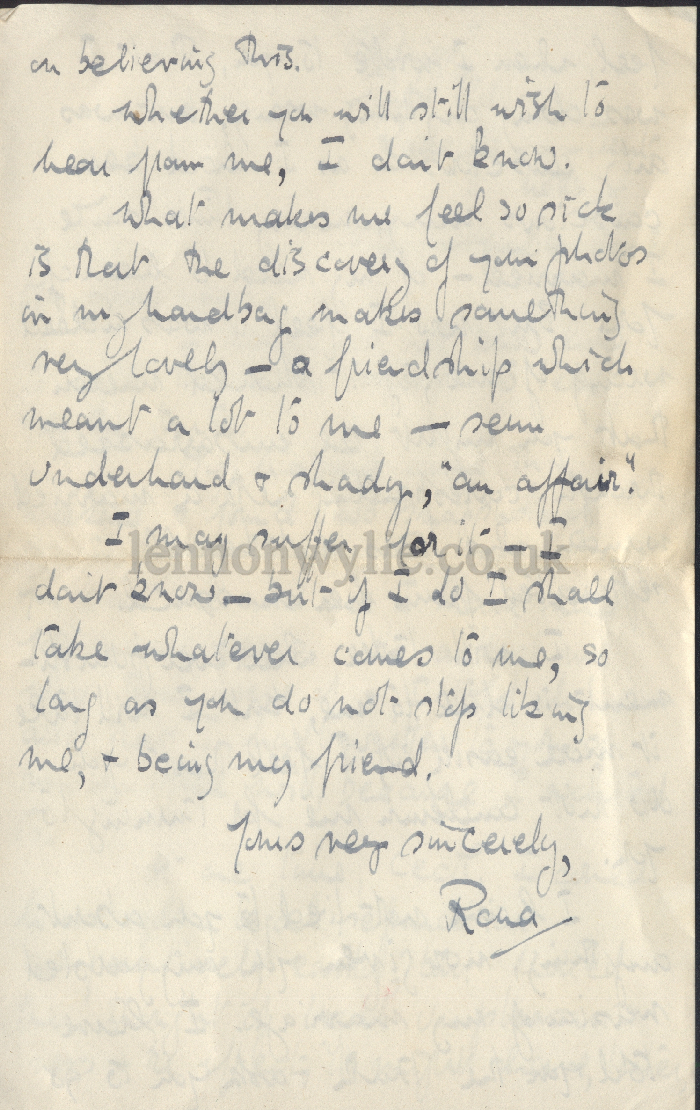 on believing this.
Whether you will still wish to
hear from me, I don't know.
What makes me feel so sick
is that the discovery of your photos
in my handbag makes something
very lovely — a friendship which
meant a lot to me — seem
underhand & shady, "an affair".
I may suffer for it — I
lennonwylie.co.uk
don't know — but if I do I shall
take whatever comes to me, so
long as you do not stop liking
me, & being my friend.
Yours very sincerely,
Rona